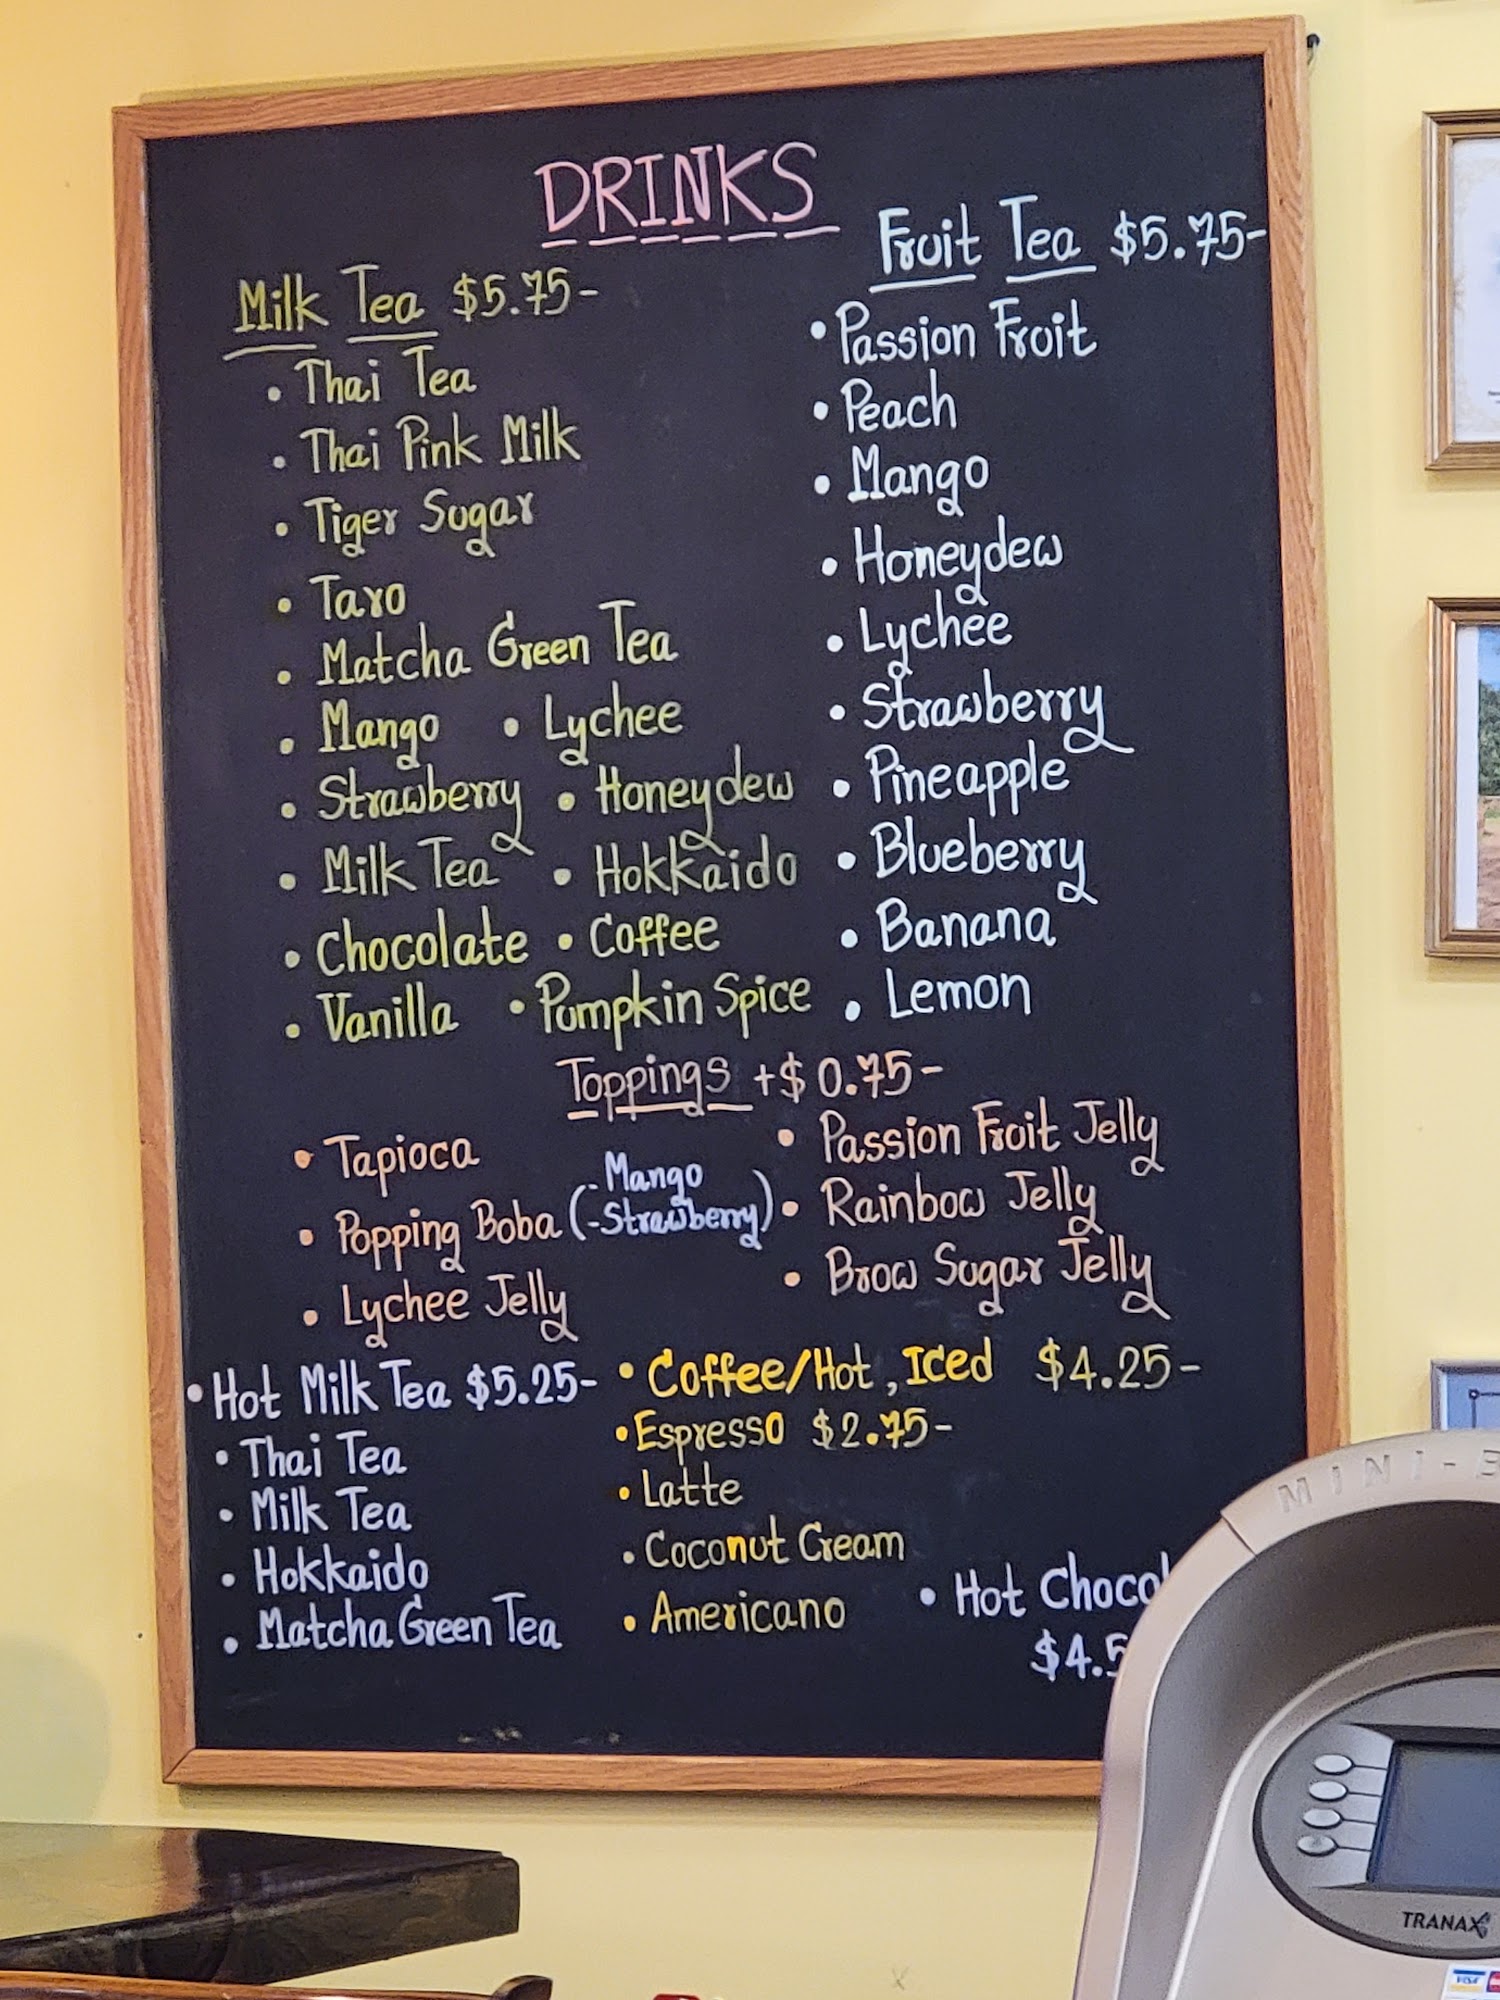 DRINKS
Milk Tea $5.75-
• Thai Tea
• Thai Pink Milk
• Tiger Sugar
• Taro
• Matcha Green Tea
• Mango • Lychee
• Strawberry • Honeydew
• Milk Tea • Hokkaido
• Chocolate • Coffee
• Vanilla • Pumpkin Spice
Fruit Tea $5.75-
• Passion Fruit
• Peach
• Mango
• Honeydew
• Lychee
• Strawberry
• Pineapple
• Blueberry
• Banana
• Lemon
Toppings +$0.75-
• Tapioca
• Popping Boba (-Mango
-Strawberry)
• Lychee Jelly
• Passion Fruit Jelly
• Rainbow Jelly
• Brow Sugar Jelly
• Hot Milk Tea $5.25-
• Thai Tea
• Milk Tea
• Hokkaido
• Matcha Green Tea
• Coffee/Hot, Iced $4.25-
• Espresso $2.75-
• Latte
• Coconut Cream
• Americano
• Hot Chocol
$4.5
MINI-B
TRANAX
VISA